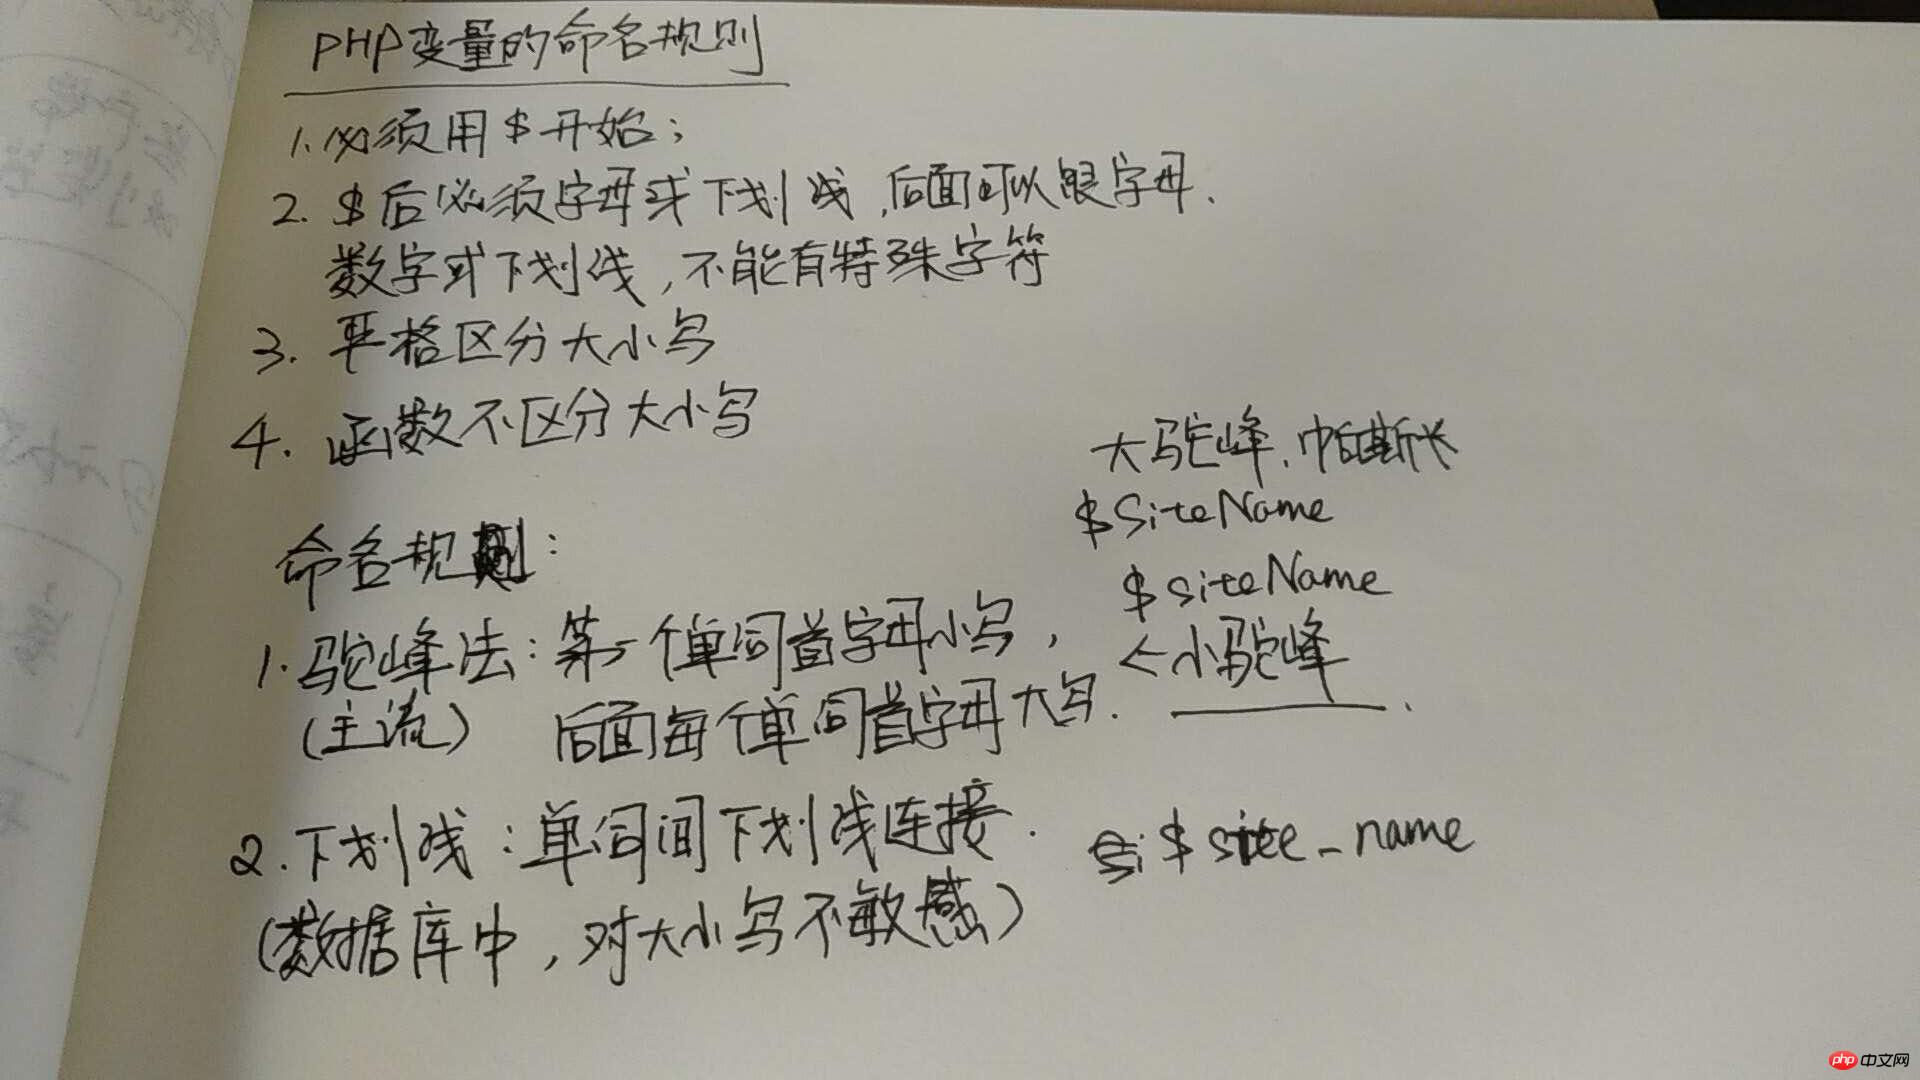 PHP变量的命名规则
1.必须用$开始;
2. $后必须字母或下划线,后面可以跟字母.
数字或下划线,不能有特殊字符
3. 严格区分大小写
4. 函数不区分大小写
大驼峰.帕斯长
$SiteName
命名规则:
$siteName
1.驼峰法:第一个单词首字母小写,
<小驼峰
(主流) 后面每个单词首字母大写.
2.下划线:单词间下划线连接.
$site_name
(数据库中,对大小写不敏感)
php 中文网